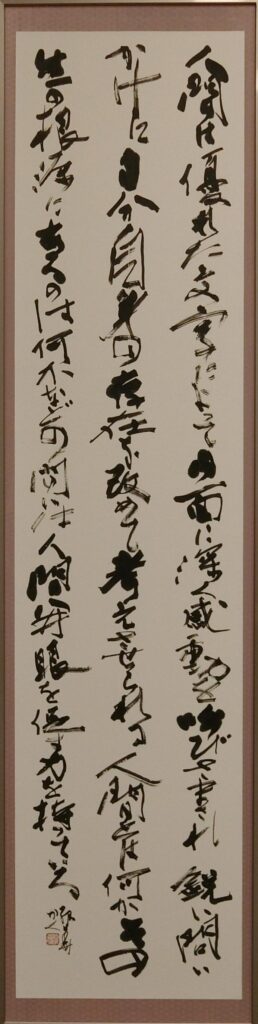 人間は優れた文字によって内面に深く感動を呼び覚まされ鋭い問い
かけに自分自身の存在を改めて考えさせられる人間とは何かその
生の根源にあるのは何かなどの問いは人間開眼を促す力を持っている